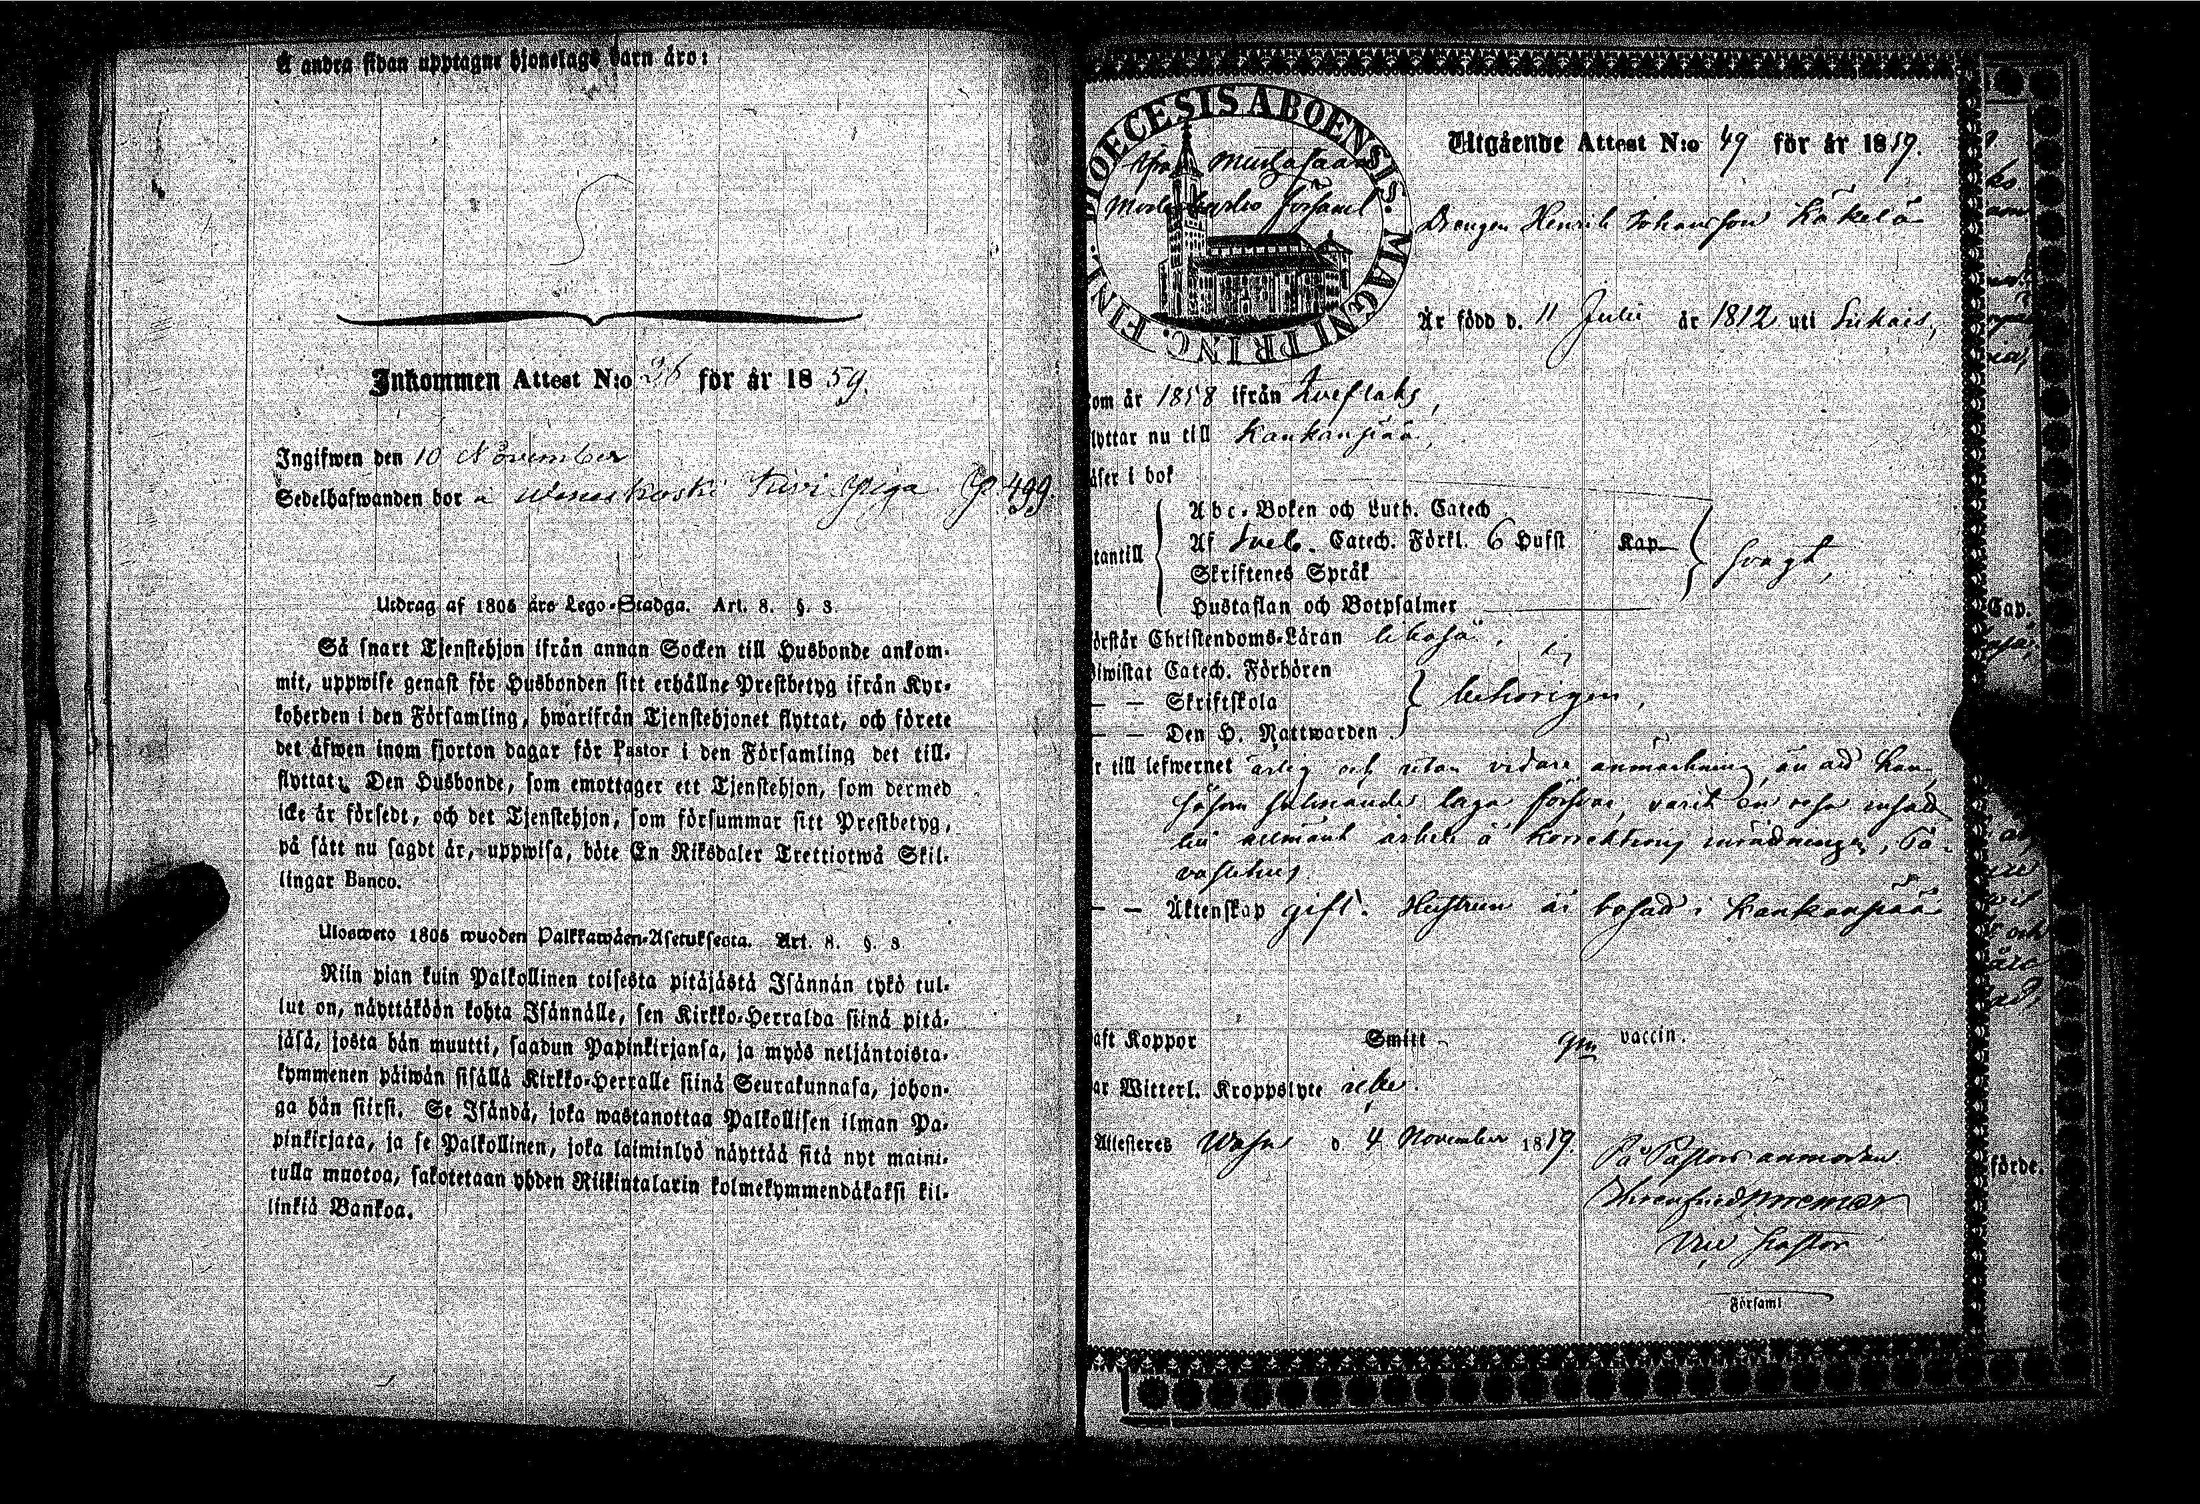 Å andra sidan upptagne hjonelags barn äro:
Inkommen Attest N:o 26 för år 1859.
Ingifwen den 10 November
Sedelhafwanden bor å
Utdrag af 1805 års Lego-Stadga. Art. 8. §. 3
Så snart Tjenstehjon ifrån annan Socken till Husbonde ankom-
mit, uppwise genast för Husbonden sitt erhållne Prestbetyg ifrån Kyr-
koherden i den Församling, hwarifrån Tjenstehjonet flyttat, och förete
det äfwen inom fjorton dagar för Pastor i den Församling det till-
flyttat. Den Husbonde, som emottager ett Tjenstehjon, som dermed
icke är försedt, och det Tjenstehjon, som försummar sitt Prestbetyg,
på sätt nu sagdt är, uppwisa, böte En Riksdaler Trettiotwå Skil-
lingar Banco.
Ulosweto 1805 wuoden Palkkawäen-Asetuksesta. Art. 8. §. 3
Niin pian kuin Palkollinen toisesta pitäjästä Isännän tykö tul-
lut on, näyttäköön kohta Isännälle, sen Kirkko-Herralda siinä pitä-
jäsä, josta hän muutti, saadun Papinkirjansa, ja myös neljäntoista-
kymmenen päiwän sisällä Kirkko-Herralle siinä Seurakunnasa, johon-
ga hän siirsi. Se Isändä, joka wastanottaa Palkollisen ilman Pa-
pinkirjata, ja se Palkollinen, joka laiminlyö näyttää sitä nyt maini-
tulla muotoa, sakotetaan yhden Riikintalarin kolmekymmendäkaksi kil-
linkiä Bankoa.
DIOECESIS ABOENSIS. MAGNI PRINC. FINL.
Utgående Attest N:o 49 för år 1859.
Drengen Henrik Johansson Käkelä
Är född d. 11 Julii år 1812 uti
om år 1858 ifrån Qveflaks,
lyttar nu till Kankanpää,
äser i bok
Abc-Boken och Luth. Catech
tantill Af Sveb. Catech. Förkl. 6 Hufst Kap. svagt,
Skriftenes Språk
Hustaflan och Botpsalmer
örstår Christendoms-Läran likaså,
iwistat Catech. Förhören
— — Skriftskola behörigen,
— — Den H. Nattwarden
r till lefwernet ärlig och utan vidare anmärkning, än att han,
såsom saknande laga försvar, varit en resa insatt
till allmänt arbete å korrektions inrättningen i Ta-
vastehus
— — Äktenskap gift. Hustrun är bosatt i Kankanpää
aft Koppor Smitt gm vaccin.
ar Witterl. Kroppslyte icke.
Attesteres Wasa d. 4 November 1859.
På Pastors anmodan
Vice Pastor
Församl
Cap.
förde.